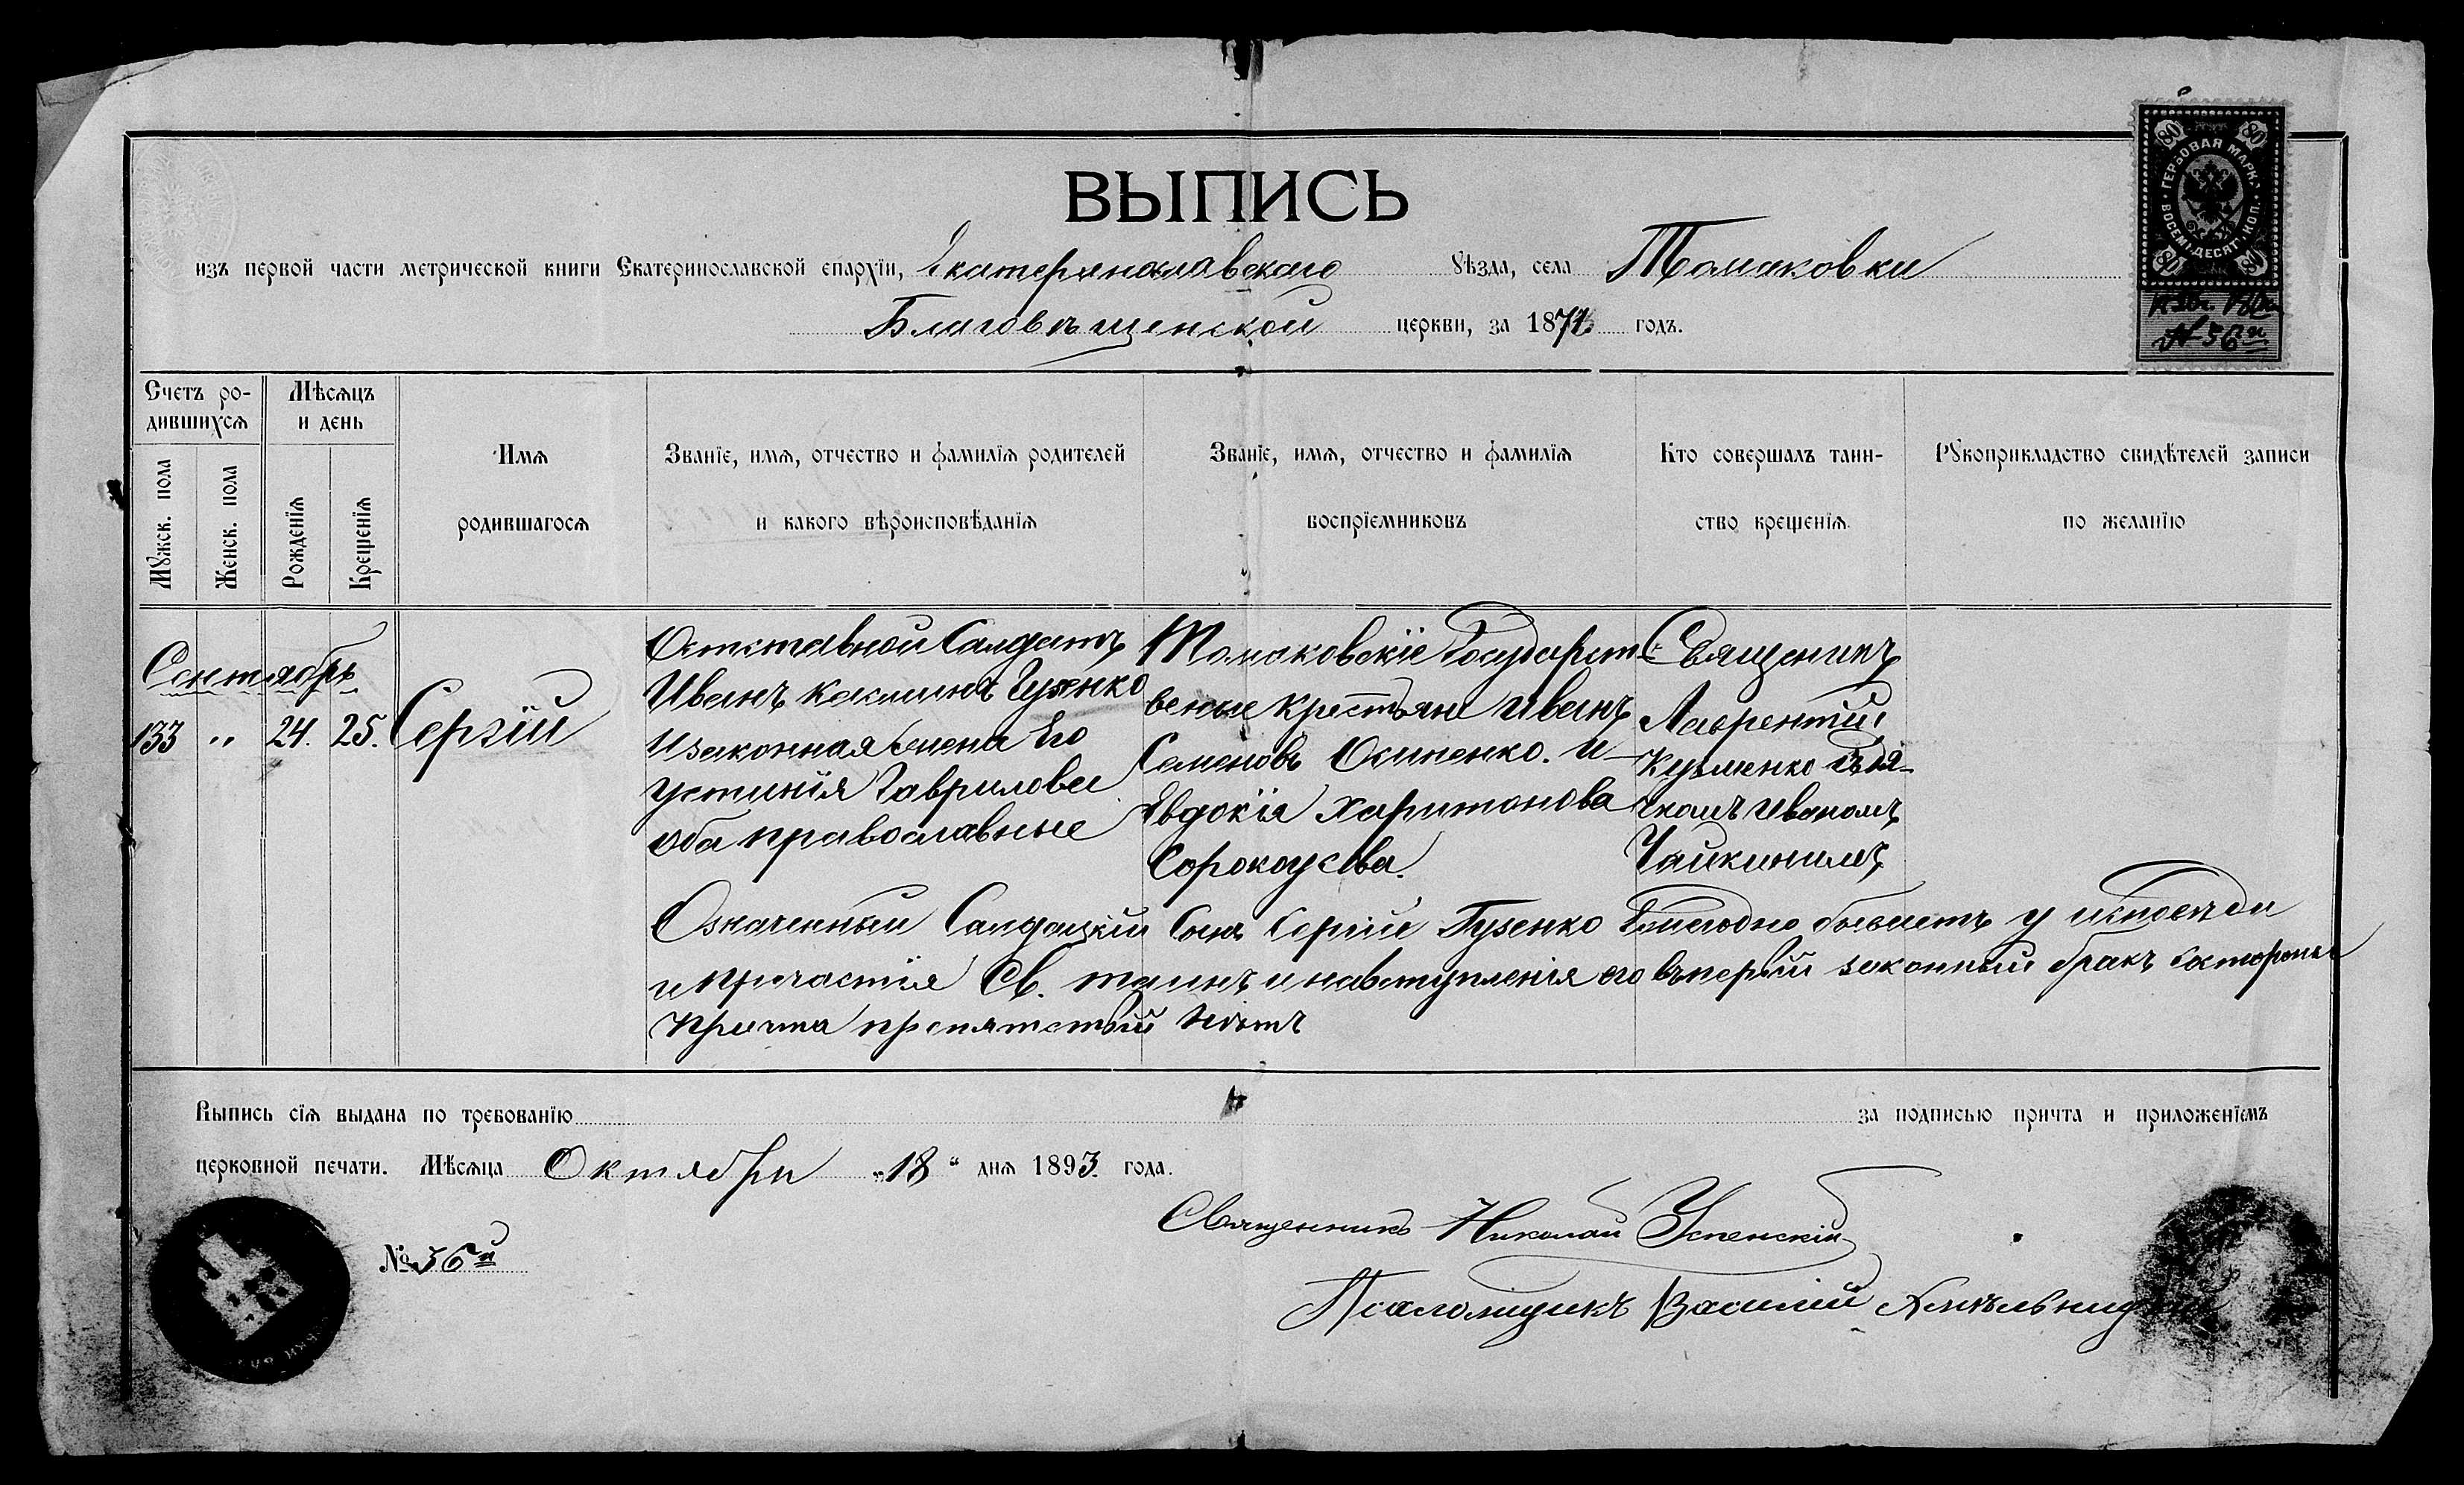 ВЫПИСЬ
изъ первой части метрической книги Екатеринославской епархїи, Екатеринославскаго уѣзда, села Томаковки
Благовѣщенской церкви, за 1871 годъ.
ГЕРБОВАЯ МАРКА
ВОСЕМЬДЕСЯТЪ КОП.
80 80
80 80
№ 56й
Счетъ ро-
дившихся
Мѣсяцъ
и день
Мужск. пола
Женск. пола
Рожденїя
Крещенїя
Имя
родившагося
Званїе, имя, отчество и фамилїя родителей
и какого вѣроисповѣданїя
Званїе, имя, отчество и фамилїя
воспрїемниковъ
Кто совершалъ таин-
ство крещенїя
Рукоприкладство свидѣтелей записи
по желанїю
Сентябрь
133 " 24. 25. Сергій
Отставной Салдатъ
Иванъ Гузенко
и законная жена Его
Устинія Гаврилова
оба православные
Томаковскіе Государст-
веные крестьяне Иванъ
Семеновъ Осипенко. и
Евдокія Харитонова
Сорокоусова.
Священикъ
Лаврентій
Кузменко съ дья-
чкомъ Иваномъ
Чайкинимъ
Означенный Салдацкій Сынъ Сергій Гузенко Ежегодно бываетъ у исповѣди
и причастія Св. таинъ и навступленія его въперьвій законный бракъ состороны
причта препятствій нѣтъ
Выпись сїя выдана по требованїю за подписью причта и приложенїемъ
церковной печати. Мѣсяца Октября „18“ дня 1893 года.
№ 56й
Священникъ Николай Успенскій
Псаломщикъ Василій